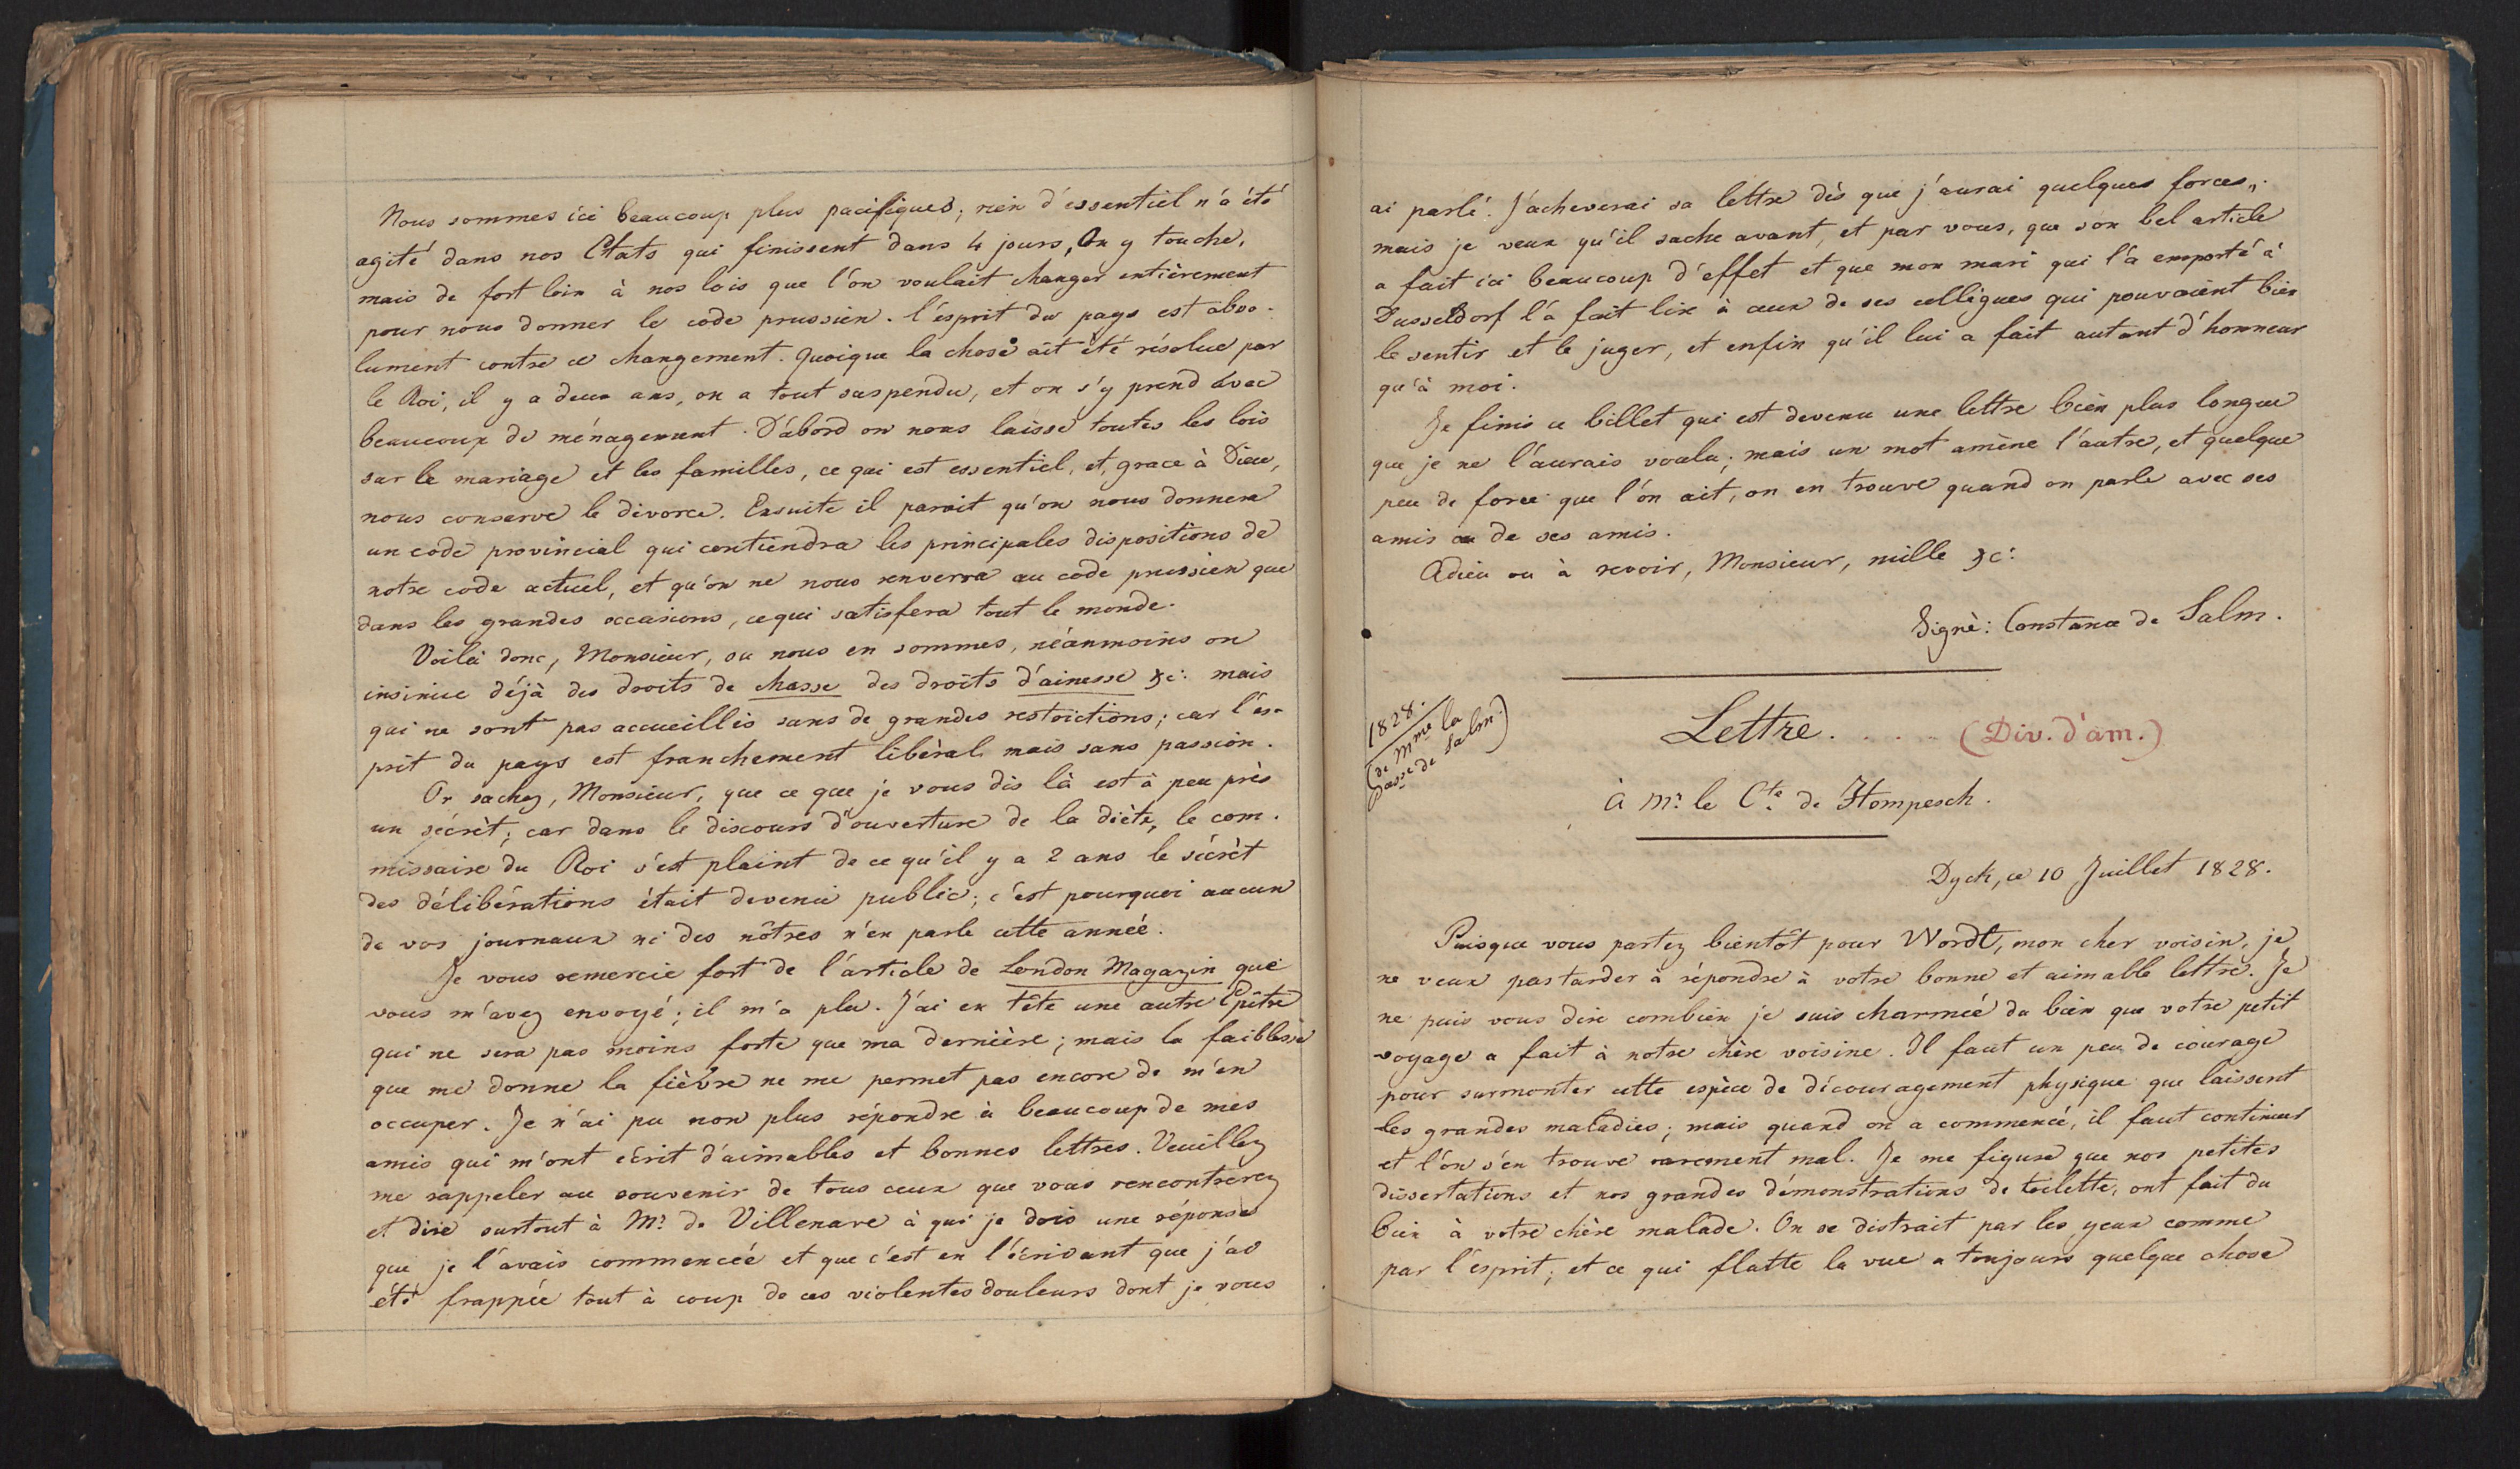 Nous sommes ici beaucoup plus pacifiques; rien d'essentiel n'a été
agité dans nos Etats qui finissent dans 4 jours, On y touche,
mais de fort loin à nos lois que l'on voulait changer entièrement
pour nous donner le code prussien. l'esprit du pays est abso-
lument contre ce changement. Quoique la chose ait été résolue par
le Roi, il y a deux ans, on a tout suspendu, et on s'y prend avec
beaucoup de ménagement. D'abord on nous laisse toutes les lois
sur le mariage et les familles, ce qui est essentiel, et, grace à Dieu,
nous conserve le divorce. Ensuite il parait qu'on nous donnera
un code provincial qui contiendra les principales dispositions de
notre code actuel, et qu'on ne nous renverra au code prussien que
dans les grandes occasions, ce qui satisfera tout le monde.
Voilà donc, Monsieur, ou nous en sommes, néanmoins on
insinue déjà des droits de chasse des droits d'ainesse &c: mais
qui ne sont pas accueillis sans de grandes restrictions; car l'es-
prit du pays est franchement libéral mais sans passion.
Or sachez, Monsieur, que ce que je vous dis là est à peu près
un sécrèt; car dans le discours d'ouverture de la diète, le com-
missaire du Roi s'est plaint de ce qu'il y a 2 ans le sécrèt
des délibérations était devenu public; c'est pourquoi aucun
de vos journaux ni des nôtres n'en parle cette année.
Je vous remercie fort de l'article de London Magazin que
vous m'avez envoyé; il m'a plu. J'ai en tête une autre Epître
qui ne sera pas moins forte que ma dernière; mais la faiblesse
que me donne la fièvre ne me permet pas encore de m'en
occuper. Je n'ai pu non plus répondre à beaucoup de mes
amis qui m'ont écrit d'aimables et bonnes lettres. Veuillez
me rappeler au souvenir de tous ceux que vous rencontrerez
et dire surtout à Mr. de Villenave à qui je dois une réponse
que je l'avais commencée et que c'est en l'écrivant que j'ai
été frappée tout à coup de ces violentes douleurs dont je vous
ai parlé. J'acheverai sa lettre dès que j'aurai quelques forces,
mais je veux qu'il sache avant, et par vous, que son bel article
a fait ici beaucoup d'effet et que mon mari qui l'a emporté à
Dusseldorf l'a fait lire à ceux de ses collègues qui pouvaient bien
le sentir et le juger, et enfin qu'il lui a fait autant d'honneur
qu'à moi.
Je finis ce billet qui est devenu une lettre bien plus longue
que je ne l'aurais voulu; mais un mot amène l'autre, et quelque
peu de force que l'on ait, on en trouve quand on parle avec ses
amis ou de ses amis.
Adieu ou à revoir, Monsieur, mille &c:
Signé: Constance de Salm.
1828.
(de Mme la
Psse de Salm.)
Lettre. . . . . (Div. d'am.)
à Mr. le Cte de Hompesch.
Dyck, ce 10 Juillet 1828.
Puisque vous partez bientôt pour Wordt, mon cher voisin, je
ne veux pas tarder à répondre à votre bonne et aimable lettre. Je
ne puis vous dire combien je suis charmée du bien que votre petit
voyage a fait à notre chère voisine. Il faut un peu de courage
pour surmonter cette espèce de découragement physique que laissent
les grandes maladies; mais quand on a commencé, il faut continuer
et l'on s'en trouve rarement mal. Je me figure que nos petites
dissertations et nos grandes démonstrations de toilette, ont fait du
bien à votre chère malade. On se distrait par les yeux comme
par l'esprit; et ce qui flatte la vue a toujours quelque chose